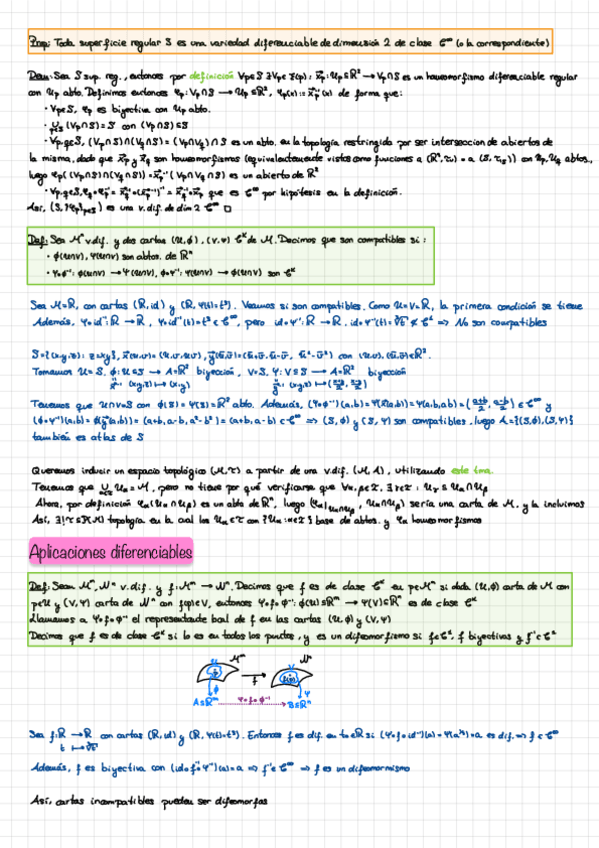 Prop: Toda superficie regular S es una variedad diferenciable de dimensión 2 de clase C^∞ (o la correspondiente)
Dem: Sea S sup. reg., entonces por definición ∀p∈S ∃V_p∈E(p); x⃗_p: U_p⊆R² → V_p∩S es un homeomorfismo diferenciable regular
con U_p abto. Definimos entonces φ_p: V_p∩S → U_p⊆R², φ_p(x) := x⃗_p⁻¹(x) de forma que:
· ∀p∈S, φ_p es biyectiva con U_p abto.
· ⋃_{p∈S} (V_p∩S) = S con (V_p∩S)⊆S
· ∀p,q∈S, (V_p∩S)∩(V_q∩S) = (V_p∩V_q)∩S es un abto. en la topología restringida por ser intersección de abiertos de
la misma, dado que x⃗_p y x⃗_q son homeomorfismos (equivalentemente vistos como funciones a (R², τ_u) → a (S, τ_S)) con U_p, U_q abtos.,
luego φ_p((V_p∩S)∩(V_q∩S)) = x⃗_p⁻¹(V_p∩V_q∩S) es un abierto de R²
· ∀p,q∈S, φ_q∘φ_p⁻¹ = x⃗_q⁻¹∘(x⃗_p⁻¹)⁻¹ = x⃗_q⁻¹∘x⃗_p que es C^∞ por hipótesis en la definición.
Así, (S, {φ_p}_{p∈S}) es una v.dif. de dim 2 C^∞ □
Def: Sea M^n v.dif. y dos cartas (U,ϕ), (V,Ψ) C^k de M. Decimos que son compatibles si:
· ϕ(U∩V), Ψ(U∩V) son abtos. de R^n
· Ψ∘ϕ⁻¹: ϕ(U∩V) → Ψ(U∩V), ϕ∘Ψ⁻¹: Ψ(U∩V) → ϕ(U∩V) son C^k
Sea M=R, con cartas (R, id) y (R, Ψ(t)=t³). Veamos si son compatibles. Como U=V=R, la primera condición se tiene
Además, Ψ∘id⁻¹: R → R, Ψ∘id⁻¹(t)=t³ ∈ C^∞, pero id∘Ψ⁻¹: R → R, id∘Ψ⁻¹(t)=∛t ∉ C^k ⇒ No son compatibles
S={(x,y,z): z=xy}, x⃗(u,v)=(u,v,uv), y⃗(ū,v̄)=(ū+v̄, ū-v̄, ū²-v̄²) con (u,v), (ū,v̄)∈R².
Tomamos U=S, ϕ: U⊆S → A=R² biyección, V=S, Ψ: V⊆S → A=R² biyección
x⃗⁻¹: (x,y,z) ↦ (x,y) y⃗⁻¹: (x,y,z) ↦ (x+y/2, x-y/2)
Tenemos que U∩V=S con ϕ(S)=Ψ(S)=R² abto. Además, (Ψ∘ϕ⁻¹)(a,b)=Ψ(x⃗(a,b))=Ψ(a,b,ab)=(a+b/2, a-b/2)∈C^∞ y
(ϕ∘Ψ⁻¹)(a,b)=ϕ(y⃗(a,b))=(a+b, a-b, a²-b²)=(a+b, a-b)∈C^∞ ⇒ (S,ϕ) y (S,Ψ) son compatibles, luego A={(S,ϕ),(S,Ψ)}
también es atlas de S
Queremos inducir un espacio topológico (M,τ) a partir de una v.dif. (M,A), utilizando este tma.
Tenemos que ⋃ U_α = M, pero no tiene por qué verificarse que ∀α,β∈I, ∃γ∈I : U_γ ⊆ U_α∩U_β
Ahora, por definición φ_α(U_α∩U_β) es un abto de R^n, luego (φ_α|_{U_α∩U_β}, U_α∩U_β) sería una carta de M, y la incluimos
Así, ∃! τ⊆P(M) topología en la cual los U_α∈τ con {U_α: α∈I} base de abtos. y φ_α homeomorfismos
Aplicaciones diferenciables
Def: Sean M^m, N^n v.dif. y f: M^m → N^n. Decimos que f es de clase C^k en p∈M^m si dada (U,ϕ) carta de M con
p∈U y (V,Ψ) carta de N^n con f(p)∈V, entonces Ψ∘f∘ϕ⁻¹: ϕ(U)⊆R^m → Ψ(V)⊆R^n es de clase C^k
Llamamos a Ψ∘f∘ϕ⁻¹ el representante local de f en las cartas (U,ϕ) y (V,Ψ)
Decimos que f es de clase C^k si lo es en todos los puntos, y es un difeomorfismo si f∈C^k, f biyectiva y f⁻¹∈C^k
M^m N^n
U f
ϕ Ψ
A⊆R^m Ψ∘f∘ϕ⁻¹ B⊆R^n
Sea f: R → R con cartas (R, id) y (R, Ψ(t)=t³). Entonces f es dif. en t₀∈R si (Ψ∘f∘id⁻¹)(a)=Ψ(a^{1/3})=a es dif. ⇒ f∈C^∞
t ↦ ∛t
Además, f es biyectiva con (id∘f⁻¹∘Ψ⁻¹)(a)=a ⇒ f⁻¹∈C^∞ ⇒ f es un difeomormismo
Así, cartas incompatibles pueden ser difeomorfas